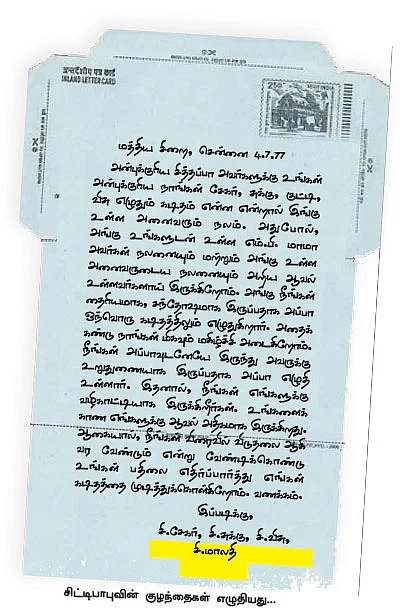 अन्तर्देशीय पत्र कार्ड
INLAND LETTER CARD
भारत INDIA
மத்திய சிறை, சென்னை 4.7.77
அன்புக்குரிய சித்தப்பா அவர்களுக்கு உங்கள்
அன்புக்குரிய நாங்கள் சேகர், சுக்கு, குட்டி,
விசு எழுதும் கடிதம் என்ன என்றால் இங்கு
உள்ள அனைவரும் நலம். அதுபோல்,
அங்கு உங்களுடன் உள்ள எம்.வி. மாமா
அவர்கள் நலனையும் மற்றும் அங்கு உள்ள
அனைவருடைய நலனையும் அறிய ஆவல்
உள்ளவர்களாய் இருக்கிறோம். அங்கு நீங்கள்
தைரியமாக, சந்தோஷமாக இருப்பதாக அப்பா
ஒவ்வொரு கடிதத்திலும் எழுதுகிறார். அதைக்
கண்டு நாங்கள் மிகவும் மகிழ்ச்சி அடைகிறோம்.
நீங்கள் அப்பாவுடனேயே இருந்து அவருக்கு
உறுதுணையாக இருப்பதாக அப்பா எழுதி
உள்ளார். இதனால், நீங்கள் எங்களுக்கு
வழிகாட்டியாக இருக்கிறீர்கள். உங்களைக்
காண எங்களுக்கு ஆவல் அதிகமாக இருக்கிறது.
ஆகையால், நீங்கள் விரைவில் விடுதலை ஆகி
வர வேண்டும் என்று வேண்டிக்கொண்டு
உங்கள் பதிலை எதிர்பார்த்து எங்கள்
கடிதத்தை முடித்துக்கொள்கிறோம். வணக்கம்.
இப்படிக்கு,
சி.சேகர், சி.சுக்கு, சி.விசு,
சி.மாலதி
சிட்டிபாபுவின் குழந்தைகள் எழுதியது...